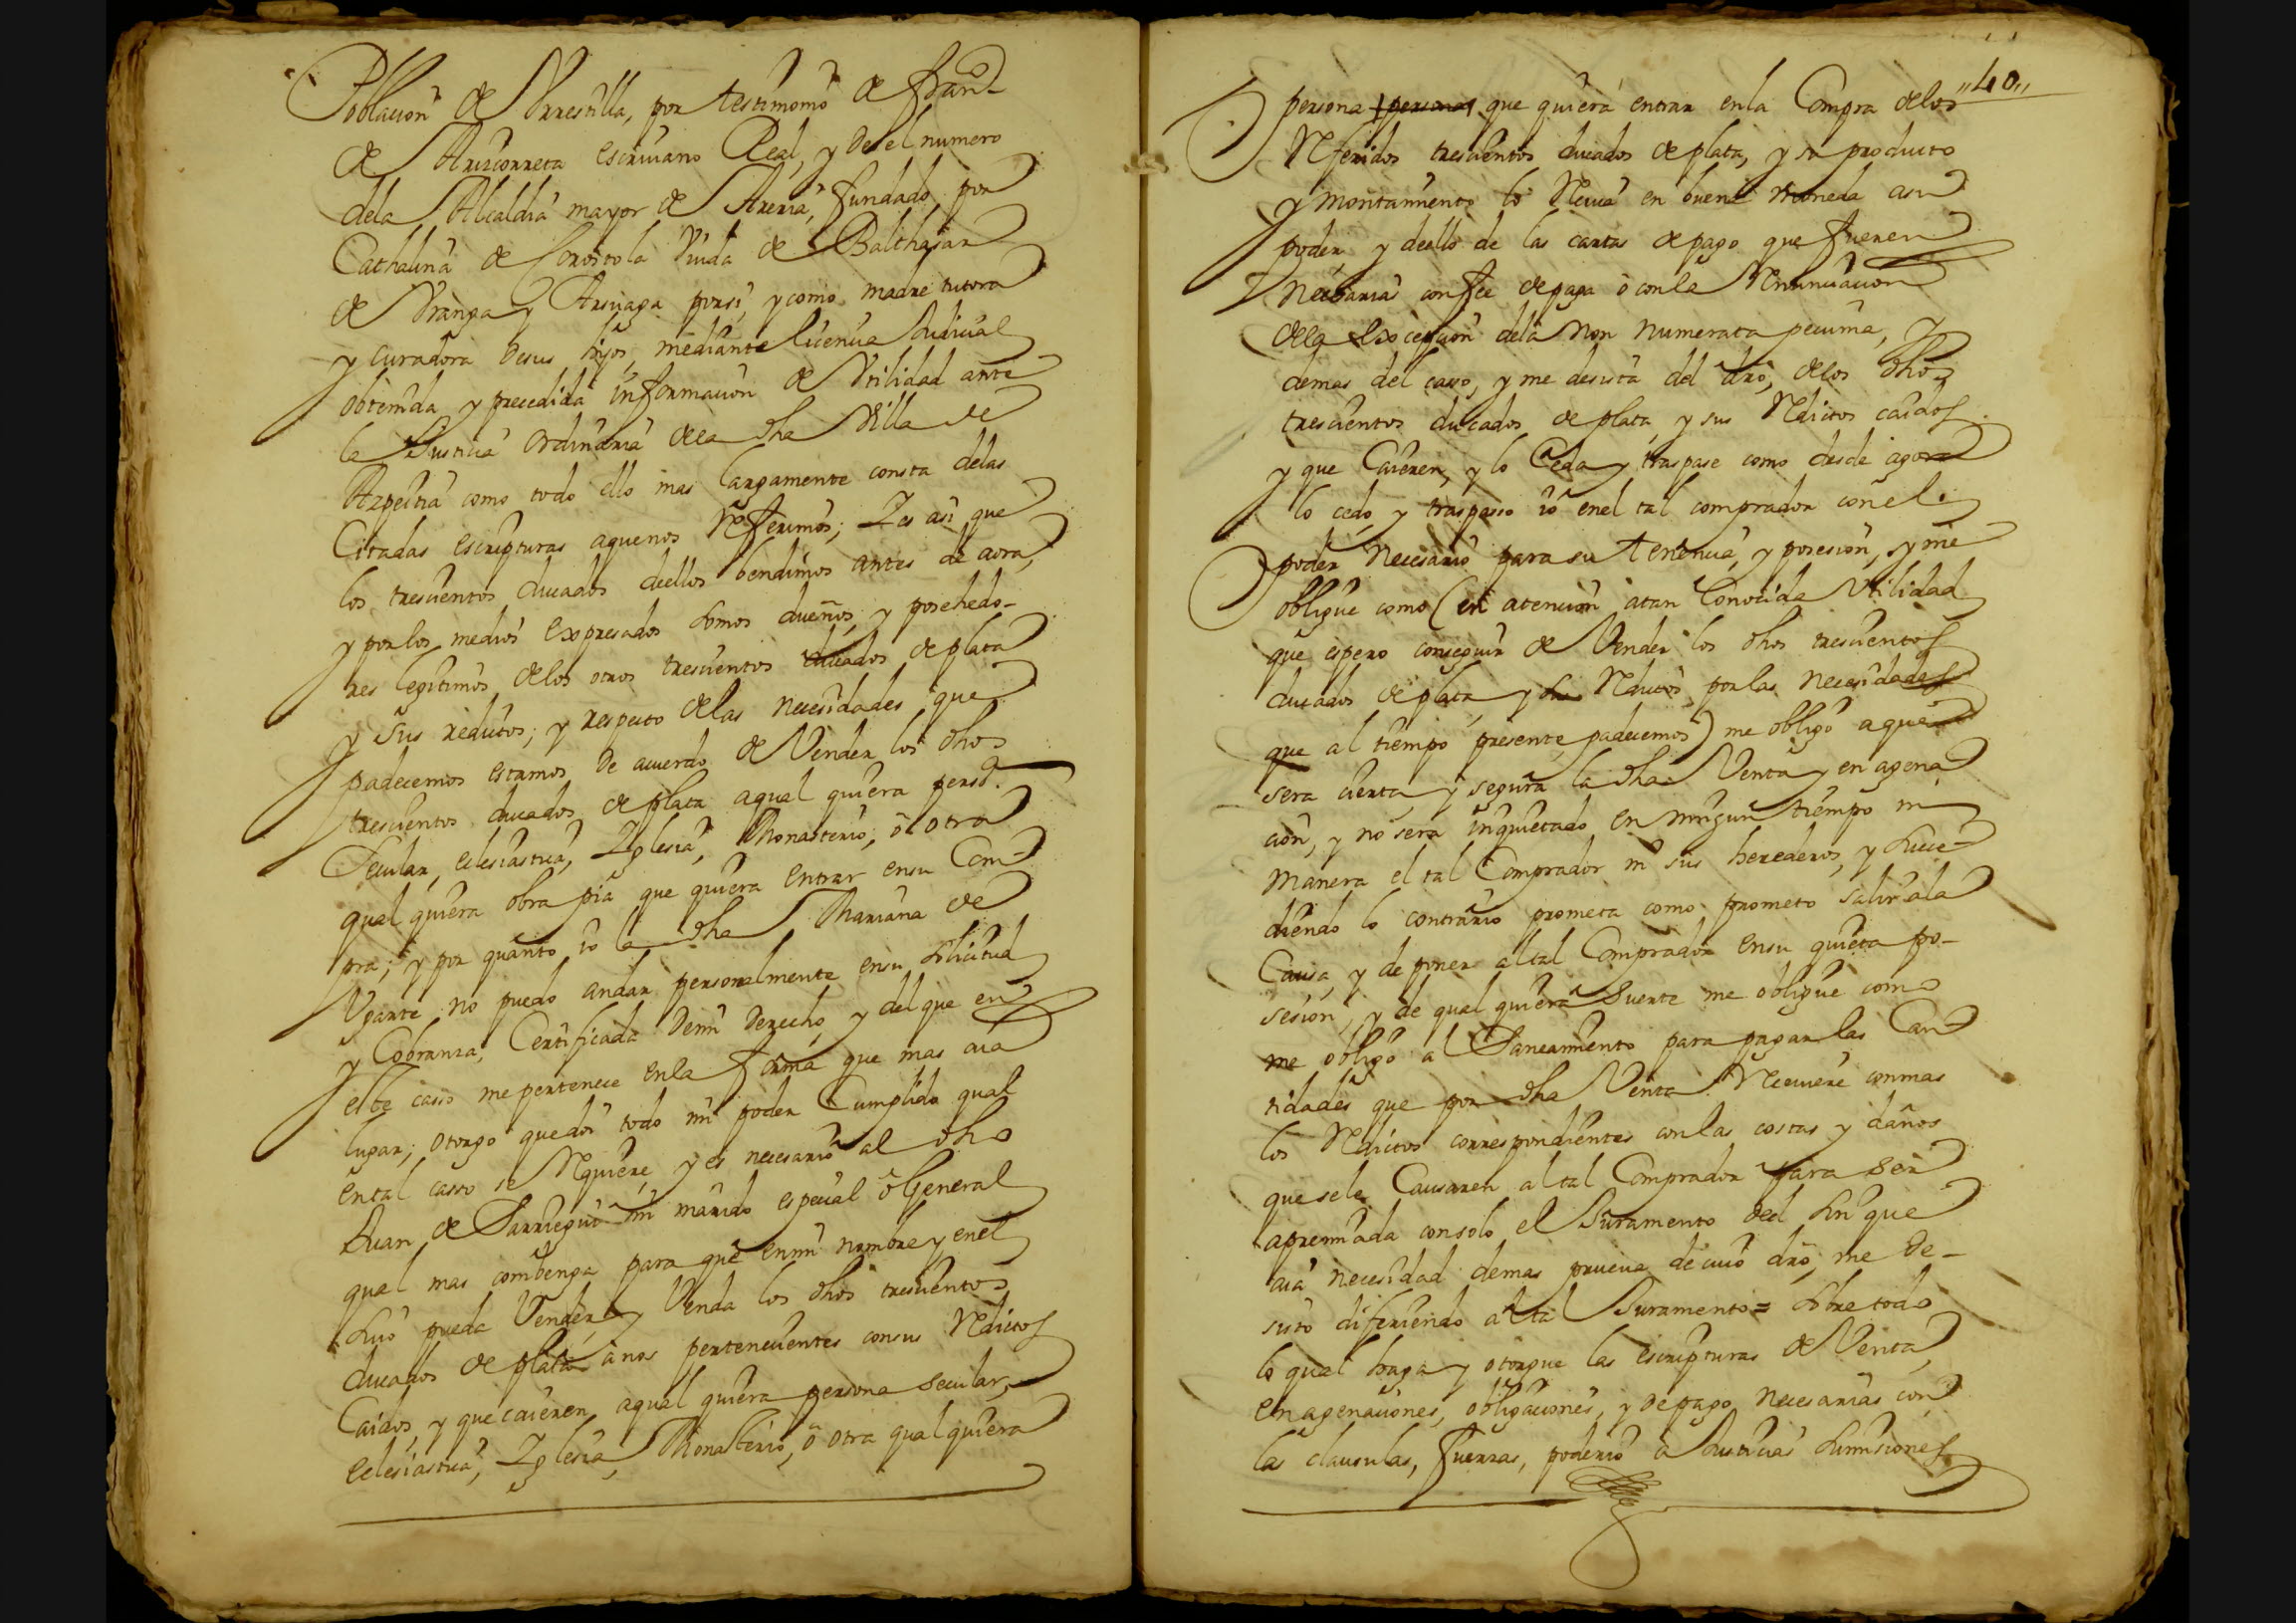 Poblacion de Vrrestilla, por testimonio de fran.co
de Arizcorreta escriuano Real, y de el numero
dela Alcaldia mayor de Areria, fundado por
Cathalina de Corostola Viuda de Balthasar
de Vranga y Arsuaga porsi, y como madre tutora
y Curadora desus hijos, mediante licencia Judicial
obtenida y precedida informacion de Vtilidad ante
la Justicia Ordinaria dela dha Villa de
Azpeitia como todo ello mas largamente consta delas
Citadas escripturas aquenos Referimos; Y es asi que
los trescientos ducados deellos bendimos antes de aora,
y por los medios expresados somos dueños, y posehedo-
res legitimos delos otros trescientos ducados de plata
y sus reditos; y respecto delas necesidades que
padecemos estamos de acuerdo de Vender los dhos
trescientos ducados de plata aqual quiera perso.a
Secular, eclesiastica, Yglesia, Monasterio, o otra
qual quiera obra pia que quiera entrar ensu Com-
pra; y por quanto io la dha Mariana de
Vgarte no puedo andar personalmente ensu solicitud
y Cobranza, Certificada demi derecho, y del que en
este casso me pertenece enla forma que mas aia
lugar; otorgo quedoi todo mi poder Cumplido qual
ental casso se Requiere, y es necesario al dho
Juan de Sarriegui mi marido especial o General
qual mas combenga para que enmi nombre y enel
suio pueda Vender, y Venda los dhos trescientos
ducados de plata anos pertenecientes consus Reditos
Caidos, y que caieren, aqual quiera persona secular,
eclesiastica, Yglesia, Monasterio, o otra qual quiera
"40"
persona que quiera entrar enla Compra delos
Referidos trescientos ducados de plata, y su producto
y montamiento lo Reciua en buena Moneda asu
poder, y deello de las cartas de pago que fueren
Necesarias con fee de paga o conla Renunciacion
dela excepcion dela Non Numerata pecunia, y
demas del casso, y me desista del dro, delos dhos
trescientos ducados de plata, y sus Reditos caidos
y que Caieren, y lo Ceda y traspase como desde agora
lo cedo y traspasso io enel tal comprador conel
poder Necesario para su tenencia, y posesion, y me
obligue como (en atencion atan Conocida Vtilidad
que espero conseguir de Vender los dhos trescientos
ducados de plata y sus Reditos, por las necesidades
que al tiempo presente padecemos) me obligo aque
sera cierta, y segura la dha Venta y en agena
cion, y no sera inquietado en ningun tiempo ni
Manera el tal Comprador ni sus herederos, y suce-
diendo lo contrario prometa como prometo salir ala
Causa, y deponer al tal Comprador ensu quieta po-
sesion, y de qual quiera Suerte me obligue como
me obligo al Saneamiento para pagar las Can
tidades que por dha Venta Reciuiere conmas
los Reditos correspondientes conlas costas y daños
que sele Causaren al tal Comprador para ser
apremiada consolo el Juramento deel sin que
aia necesidad demas prueua de cuio dro, me de-
sisto difiriendo al tal Juramento= sobre todo
lo qual haga y otorgue las escripturas de Venta,
enagenaciones, obligaciones, y depago Necesarias con
las clausulas, fuerzas, poderio a Justicias sumisiones